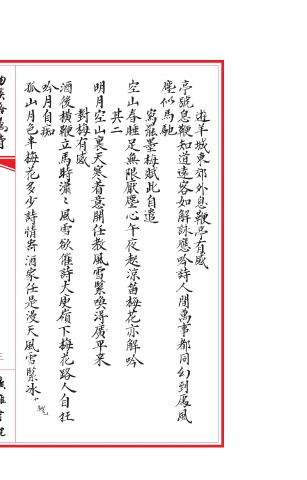 遊羊城東郊外息鞭亭有感
亭號息鞭知道遠客如解詠應吟詩人間萬事都同幻到處風
塵似馬馳
寫罷墨梅賦此自遣
空山春睡足無限厭塵心午夜起涼笛梅花亦解吟
其二
明月空山裏天寒着意開任教風雪緊喚得廣平來
對梅有感
酒後橫鞭立馬時瀟〻風雪欲催詩大庾嶺下梅花路人自狂
吟月自痴
孤山月色半梅花多少詩情寄酒家任是漫天風雪緊冰
三